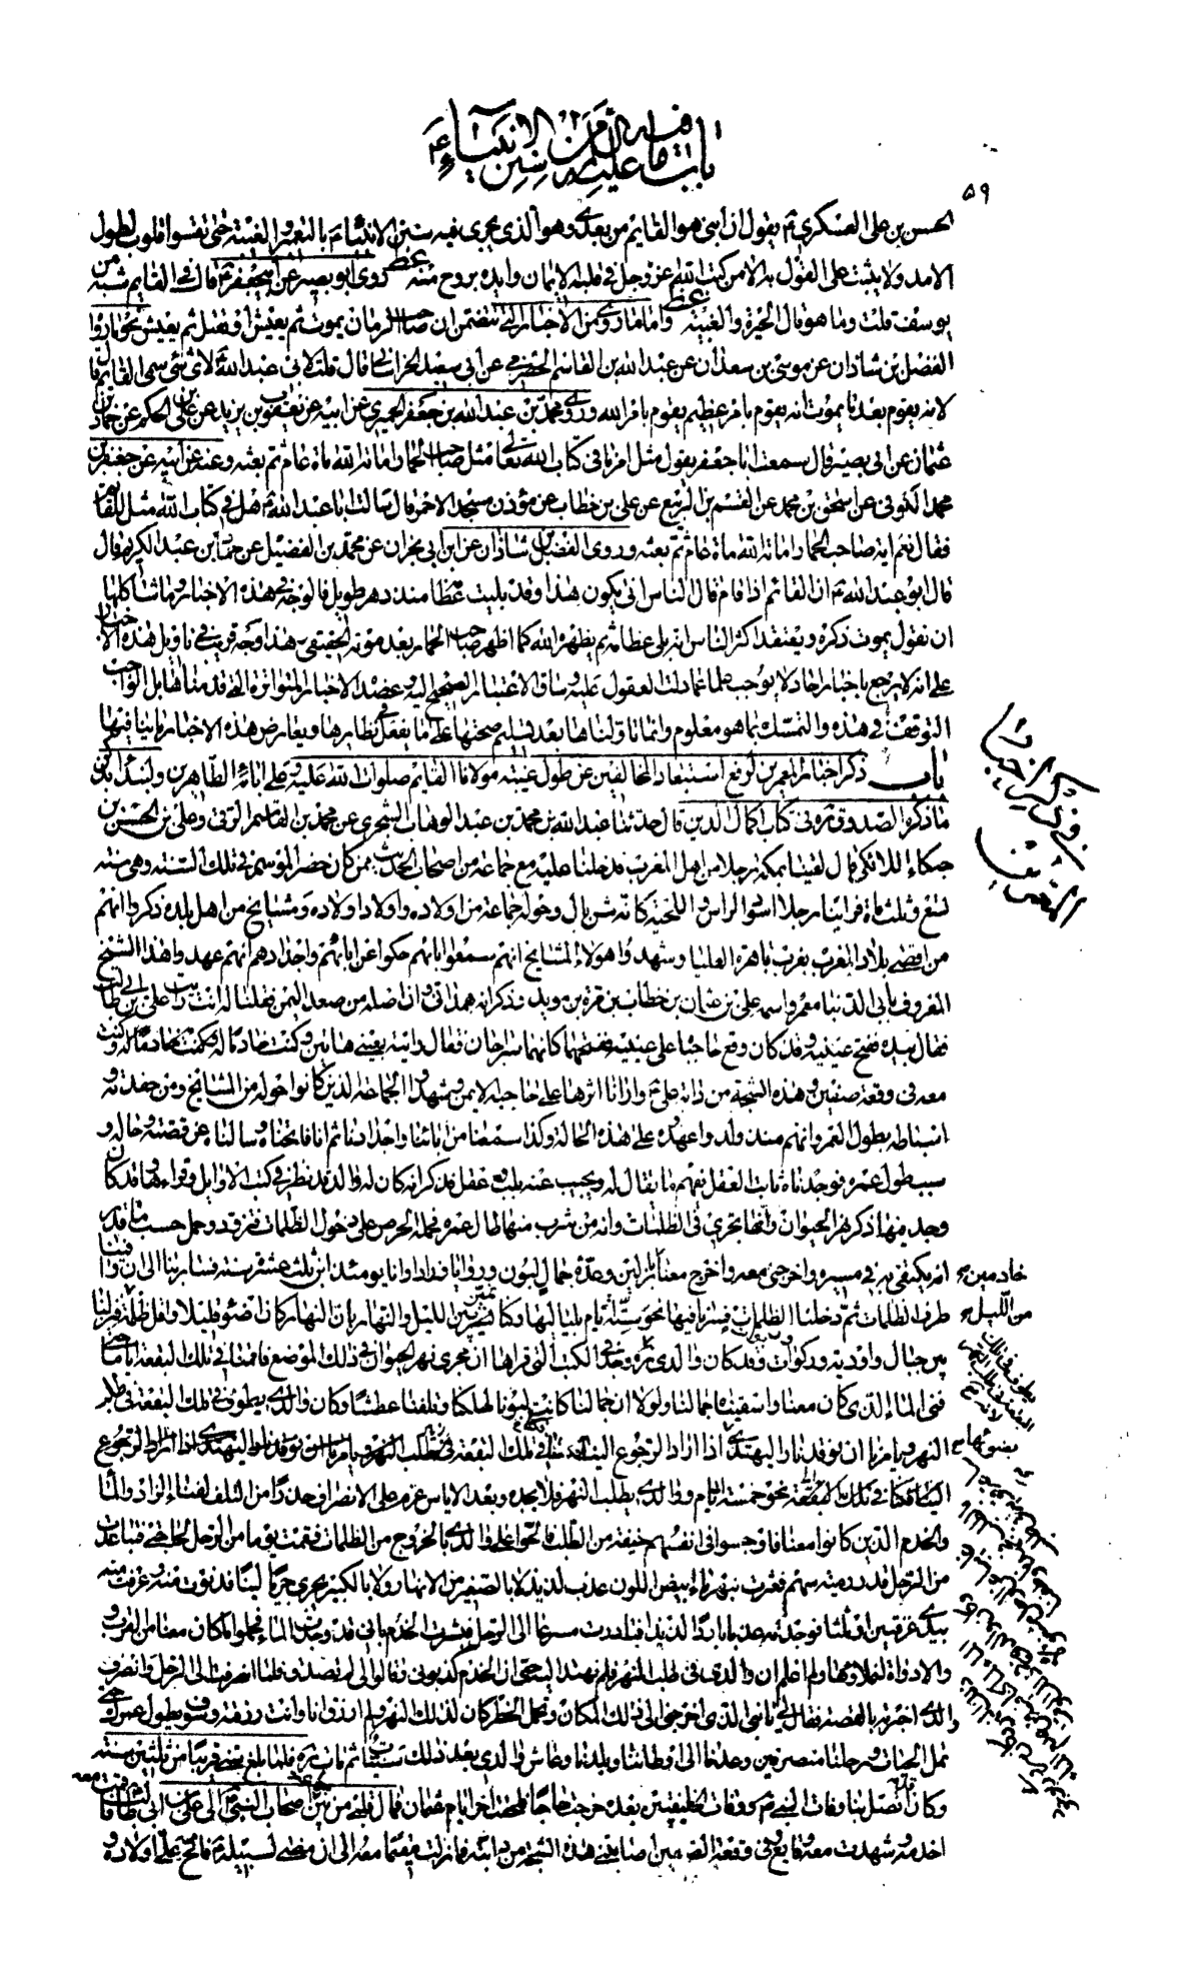 باب ما فيه عليه السلام من سنن الانبياء ع
٥٩
الحسن بن على العسكرى ع يقول ان ابنى هو القايم من بعدى وهو الذى يجرى فيه سنن الانبياء بالتعمير والغيبة حتى تقسوا قلوب لطول
الامد ولا يثبت على القول به الا من كتب الله عز وجل فى قلبه الايمان وايده بروح منه غط روى ابو بصير عن ابيجعفر ع قال فى القايم شبه من
يوسف قلت وما هو قال الحيرة والغيبة غط واما ما روى من الاخبار التى تتضمن ان صاحب الزمان يموت ثم يعيش او يقتل ثم يعيش نحو ما رواه
الفضل بن شاذان عن موسى بن سعدان عن عبد الله بن القاسم الحضرمى عن ابى سعيد الخراسانى قال قلت لابى عبد الله ع لاى شئ سمى القايم قال
لانه يقوم بعد ما يموت انه يقوم بامر عظيم يقوم بامر الله وروى محمد بن عبد الله بن جعفر الحميرى عن ابيه عن يعقوب بن يزيد عن على بن الحكم عن حماد بن
عثمان عن ابى بصير قال سمعت ابا جعفر يقول مثل امرنا فى كتاب الله تعالى مثل صاحب الحمار اماته الله مائة عام ثم بعثه وعنه عن ابيه عن جعفر بن
محمد الكوفى عن اسحق بن محمد عن القسم بن الربيع عن على بن خطاب عن مؤذن مسجد الاحمر قال سالت ابا عبد الله ع هل فى كتاب الله مثل للقايم
فقال نعم اية صاحب الحمار اماته الله مائة عام ثم بعثه وروى الفضل بن شاذان عن ابن ابى نجران عن محمد بن الفضيل عن حماد بن عبد الكريم قال
قال ابو عبد الله ع ان القائم اذا قام قال الناس انى يكون هذا وقد بليت عظامه منذ دهر طويل فالوجه فى هذه الاخبار وما شاكلها
ان نقول يموت ذكره ويعتقد اكثر الناس انه بلى عظامه ثم يظهره الله كما اظهر صاحب الحمار بعد موته الحقيقى وهذا وجه قريب فى تاويل هذه الاخبار
على انه لا يرجع باخبار احاد لا يوجب علما عما دلت العقول عليه وساق الاعتبار الصحيح اليه وعضده الاخبار المتواترة التى قدمناها بل الواجب
التوقف فى هذه والتمسك بما هو معلوم وانما تاولناها بعد تسليم صحتها على ما يفعل فى نظايرها ويعارض هذه الاخبار ما ينافيها
باب ذكر اخبار المعمرين لرفع استبعاد المخالفين عن طول غيبة مولانا القايم صلوات الله عليه وعلى ابائه الطاهرين ولنبدا بذكر
ما ذكره الصدوق ره فى كتاب اكمال الدين قال حدثنا عبد الله بن محمد بن عبد الوهاب الشجرى عن محمد بن القاسم الرقى وعلى بن الحسن بن
جنكاء اللائكى قال لقينا بمكة رجلا من اهل المغرب فدخلنا عليه مع جماعة من اصحاب الحديث ممن كان حضر الموسم فى تلك السنة وهى سنة
تسع وثلثمائة فراينا رجلا اسود الراس واللحية كانه شن بال وحوله جماعة من اولاده واولاد اولاده ومشايخ من اهل بلده ذكروا انهم
من اقصى بلاد المغرب بقرب باهرة العليا وشهدوا هولاء المشايخ انهم سمعوا ابائهم حكوا عن ابائهم واجدادهم انهم عهدوا هذا الشيخ
المعروف بابى الدنيا معمر واسمه على بن عثمان بن خطاب بن مرة بن مويد وذكر انه همدانى وان اصله من صعد اليمن فقلنا له انت رايت على بن ابى طالب
فقال بيده ففتح عينيه وقد كان وقع حاجبا على عينيه ففتحهما كانهما سراجان فقال رايته بعينى هاتين وكنت خادما له وكنت
معه فى وقعة صفين وهذه الشجة من دابة على ع وارانا اثرها على حاجبه الايمن وشهد الجماعة الذين كانوا حوله من المشايخ ومن حفدته
اسباطه بطول العمر وانهم منذ ولدوا عهدوه على هذه الحالة وكذا سمعنا من ابائنا واجدادنا ثم انا فاتحناه وسالناه عن قصته وحاله و
سبب طول عمره فوجدناه ثابت العقل يفهم ما يقال له ويجيب عنه بلب وعقل فذكر انه كان له والد قد نظر فى كتب الاوايل وقراءها وقد كان
وجد فيها ذكر نهر الحيوان وانها تجرى فى الظلمات وانه من شرب منها طال عمره فحمله الحرص على دخول الظلمات فتزود وحمل حسب ما قدر
انه يكتفى به فى مسيره واخرجنى معه واخرج معنا خادمين بازلين وعدة جمال لبون وروايا وزادا وانا يومئذ ابن ثلث عشرة سنة فسار بنا الى ان وافينا
طرف الظلمات ثم دخلنا الظلمات فسرنا فيها نحو ستة ايام بلياليها وكنا نميز بين الليل والنهار بان النهار كان اضوء قليلا واقل ظلمة من الليل فنزلنا
بين جبال واودية وذكوات وقد كان والدى ره وجد فى الكتب التى قراها ان مجرى نهر الحيوان فى ذلك الموضع فاقمنا فى تلك البقعة اياما حتى
فنى الماء الذى كان معنا واسقيناه جمالنا ولولا ان جمالنا كانت لبونا لهلكنا وتلفنا عطشا وكان والدى يطوف فى تلك البقعة فى طلب
النهر ويامرنا ان نوقد نارا ليهتدى بضوئها اذا اراد الرجوع الينا
فمكثنا فى تلك البقعة نحو خمسة ايام ووالدى يطلب النهر فلا يجده وبعد الاياس عزم على الانصراف حذرا من التلف لفناء الزاد والماء
والخدم الذين كانوا معنا فاوجسوا فى انفسهم خيفة من الطلب فالحوا على والدى بالخروج من الظلمات فقمت يوما من الرحل لحاجتى فتباعدت
من الرحل قدر رمية سهم فعثرت بنهر ماء ابيض اللون عذب لذيذ لا بالصغير من الانهار ولا بالكبير يجرى جريا لينا فدنوت منه وغرفت منه
بيدى غرفتين او ثلثا فوجدته عذبا باردا لذيذا فبادرت مسرعا الى الرحل فبشرت الخدم بانى قد وجدت الماء فحملوا ما كان معنا من القرب و
والادواة لنملاها ولم اعلم ان والدى فى طلب النهر فلم نهتد اليه حتى ان الخدم كذبونى وقالوا لى لم تصدق فلما انصرفت الى الرحل وانصرف
والدى اخبرته بالقصة فقال لى يا بنى الذى اخرجنى الى ذلك المكان وتحمل الخطر كان لذلك النهر ولم ارزق انا وانت رزقته وسوف يطول عمرك حتى
تمل الحياة ورحلنا منصرفين وعدنا الى اوطاننا وبلدنا وعاش والدى بعد ذلك سنيات ثم مات ره فلما بلغ سنى قريبا من ثلثين سنة
وكان اتصل بنا وفاة النبى ع ووفاة الخليفتين بعده خرجت حاجا فلحقت اخر ايام عثمان فمال قلبى من بين اصحاب النبى ع الى على بن ابى طالب فاقمت معه
اخدمه وشهدت معه وقايع وفى وقعة الصفين اصابتنى هذه الشجة من دابته فما زلت مقيما معه الى ان مضى لسبيله ع فالح على اولاده و
باب فى ذكر اخبار المعمرين
خادمين
من الليل
بضوئها